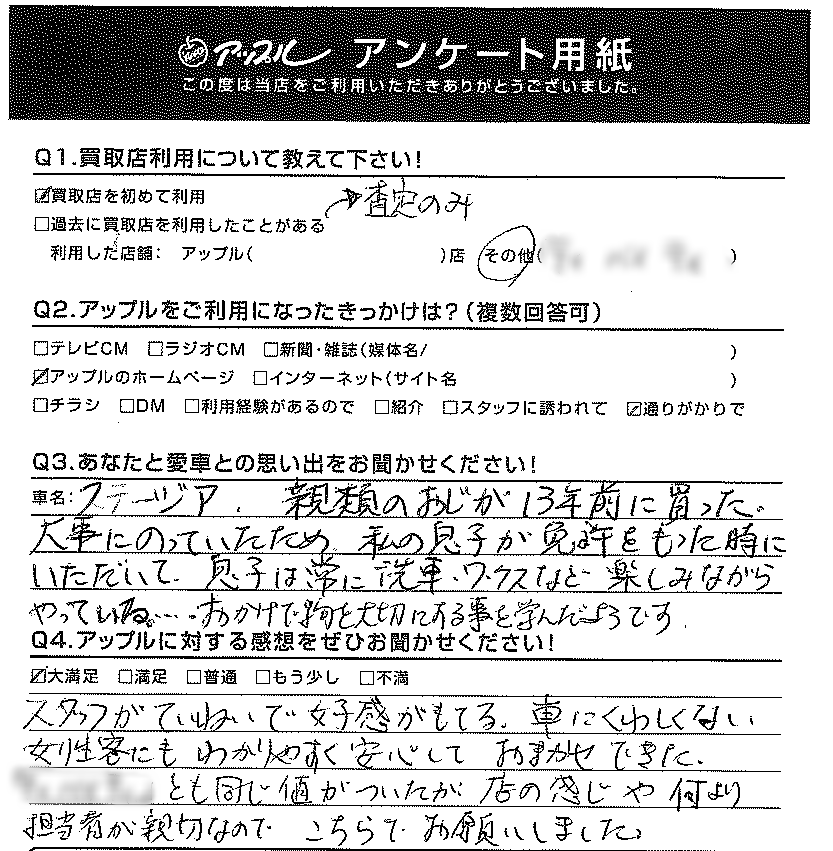 アップル アンケート用紙
この度は当店をご利用いただきありがとうございました。
Q1.買取店利用について教えて下さい!
☑買取店を初めて利用 →査定のみ
□過去に買取店を利用したことがある
利用した店舗: アップル( )店 その他( )
Q2.アップルをご利用になったきっかけは?(複数回答可)
□テレビCM □ラジオCM □新聞・雑誌(媒体名/ )
☑アップルのホームページ □インターネット(サイト名 )
□チラシ □DM □利用経験があるので □紹介 □スタッフに誘われて ☑通りがかりで
Q3.あなたと愛車との思い出をお聞かせください!
車名: ステージア. 親類のおじが13年前に買った。
大事にのっていたため 私の息子が免許をもった時に
いただいて. 息子は常に洗車・ワックスなど楽しみながら
やっている。…. おかげで物を大切にする事を学んだようです.
Q4.アップルに対する感想をぜひお聞かせください!
☑大満足 □満足 □普通 □もう少し □不満
スタッフがていねいで好感がもてる. 車にくわしくない
女性客にもわかりやすく安心しておまかせできた.
とも同じ値がついたが 店の感じや何より
担当者が親切なので こちらでお願いしました。